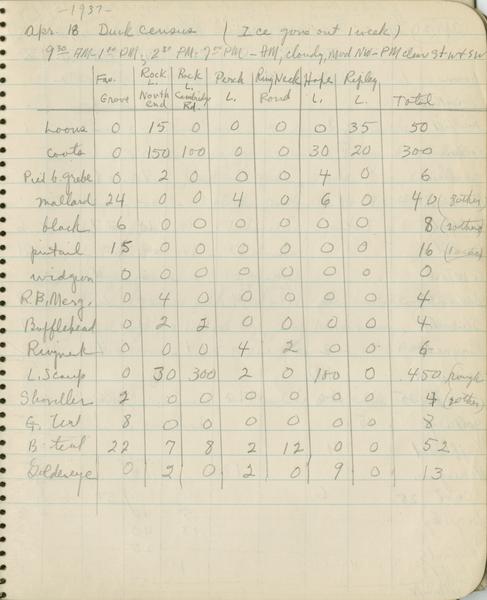 -1937-
Apr. 18 Duck census (Ice gone out 1 week)
9 30 AM-1 00 PM; 2 30 PM- 7 05 PM - AM, cloudy, Mod NW - PM clear St W + SW
Fav. Grove Rock L. North End Rock L. Cambridge Rd. Perch L. Ring Neck Pond Hope L. Ripley L. Total
Loons 0 15 0 0 0 0 35 50
Coots 0 150 100 0 0 30 20 300
Pied b. grebe 0 2 0 0 0 4 0 6
Mallard 24 0 0 4 0 6 0 40
black 6 0 0 0 0 0 0 8
pintail 15 0 0 0 0 0 0 16
widgeon 0 0 0 0 0 0 0 0
R.B. Merg. 0 4 0 0 0 0 0 4
Bufflehead 0 2 2 0 0 0 0 4
Ringneck 0 0 0 4 2 0 0 6
L. Scaup 0 30 300 2 0 180 0 450 rough
Shoveller 2 0 0 0 0 0 0 4 (2 other)
G. Teal 8 0 0 0 0 0 0 8
B-teal 22 7 8 2 12 0 0 52
Goldeneye 0 2 0 2 0 9 0 13